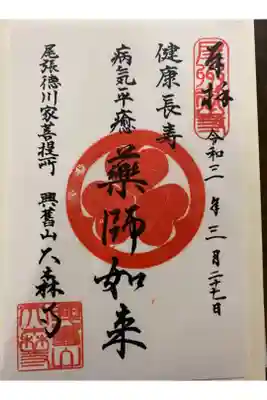 奉拝
令和三年三月二十七日
健康長寿
病気平癒
薬師如来
尾張徳川家菩提所
興舊山 大森寺